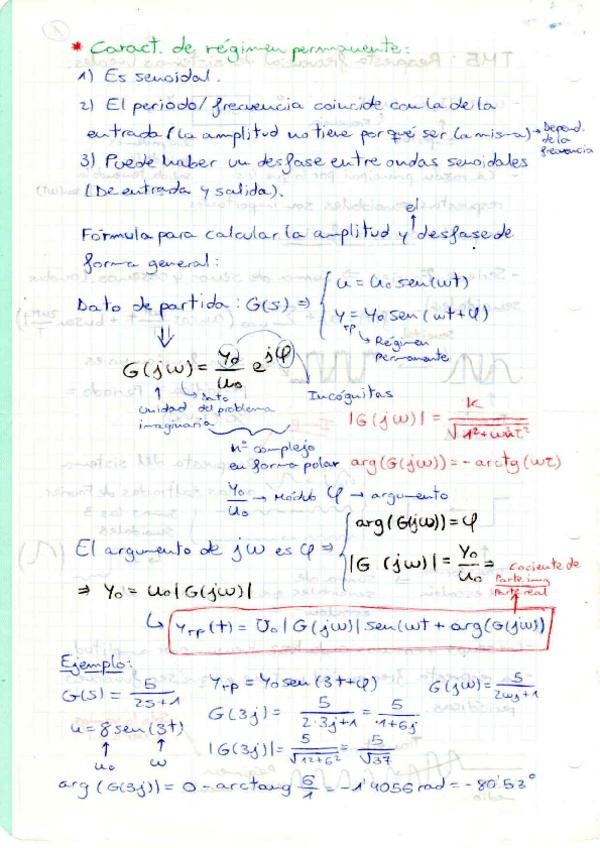 * Caract. de régimen permanente:
1) Es senoidal.
2) El período/frecuencia coincide con la de la
entrada (la amplitud no tiene por qué ser la misma) → Depend. de la frecuencia
3) Puede haber un desfase entre ondas senoidales
(De entrada y salida).
el
Fórmula para calcular la amplitud y desfase de
forma general:
Dato de partida: G(s) ⇒ { u = u₀ sen(ωt)
y_rp = y₀ sen(ωt + φ)
↳ Régimen Permanente
G(jω) = y₀/u₀ e^jφ
Incógnitas
Unidad imaginaria
Dato del problema
|G(jω)| = k/√(1²+ω²τ²)
nº complejo
en forma polar
arg(G(jω)) = -arctg(ωτ)
y₀/u₀ → Módulo φ → argumento
El argumento de jω es φ ⇒ { arg(G(jω)) = φ
|G(jω)| = y₀/u₀ ⇒
⇒ y₀ = u₀|G(jω)|
Cociente de Parte img/Parte real
↳ y_rp(t) = U₀|G(jω)| sen(ωt + arg(G(jω))
Ejemplo:
G(s) = 5/(2s+1)
y_rp = y₀ sen(3t+φ)
G(jω) = 5/(2ωj+1)
u = 8 sen(3t)
u₀ ω
G(3j) = 5/(2·3j+1) = 5/(1+6j)
|G(3j)| = 5/√(1²+6²) = 5/√37
arg(G(3j)) = 0 - arctang 6/1 = -1'4056 rad = -80'53°